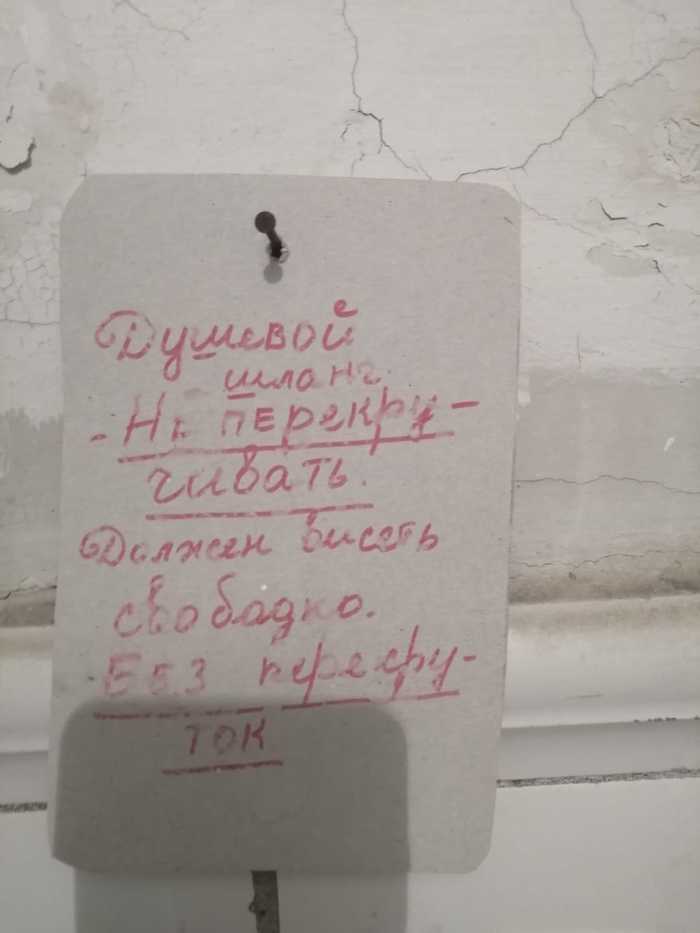 Душевой
шланг.
- Не перекру-
чивать.
Должен висеть
свободно.
Без перекру-
ток